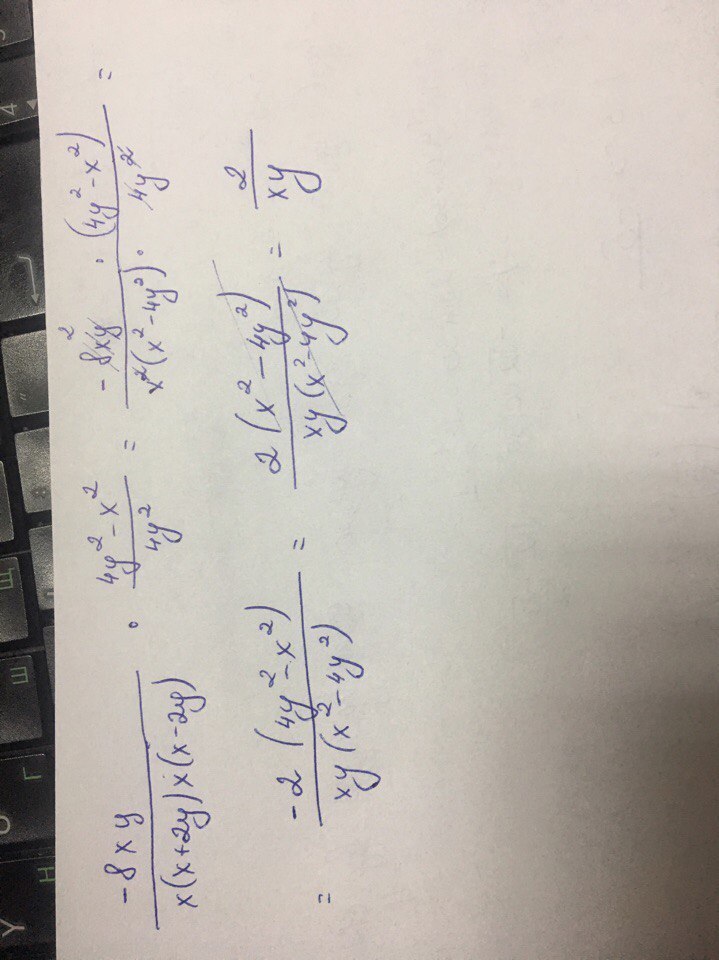 -8xy / x(x+2y)x(x-2y) · 4y² - x² / 4y² = -8xy² · (4y² - x²) / x²(x² - 4y²) · 4y² =
= -2(4y² - x²) / xy(x² - 4y²) = 2(x² - 4y²) / xy(x² - 4y²) = 2 / xy
Y
H
Г
Ш
Щ
4